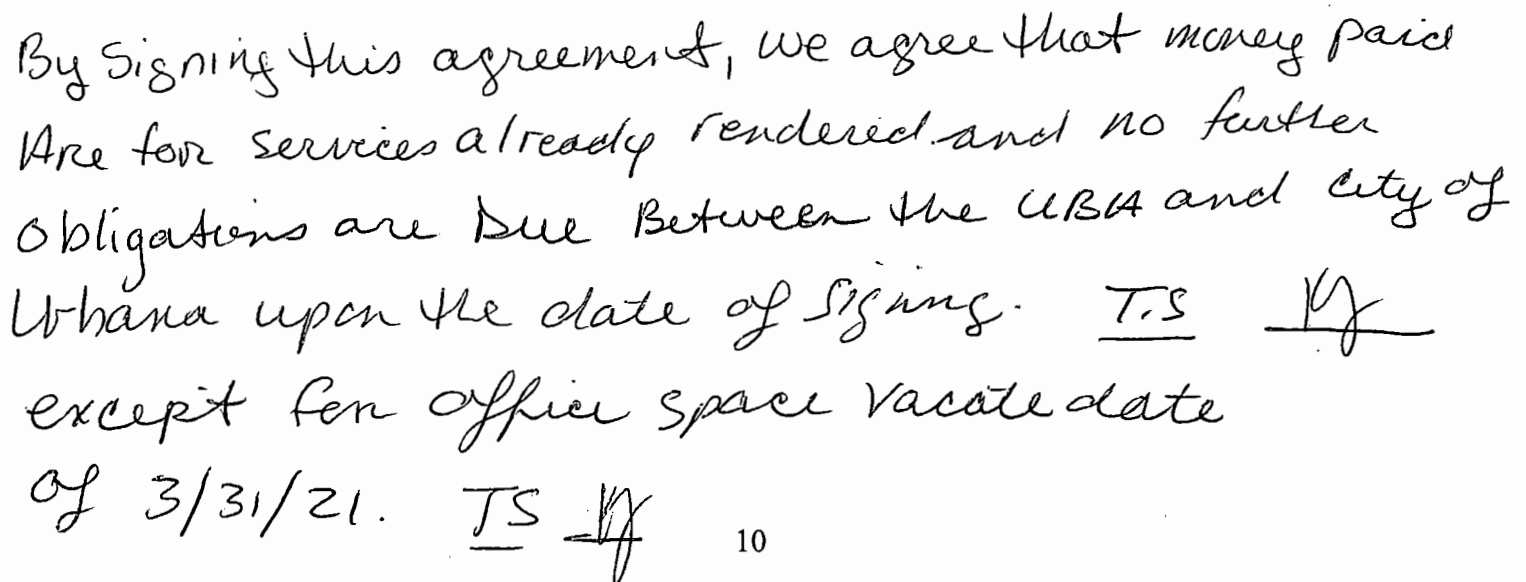 By Signing this agreement, we agree that money paid
Are for services already rendered and no further
obligations are Due Between the UBA and city of
Urbana upon the date of signing. T.S
except for office space vacate date
of 3/31/21. TS
10